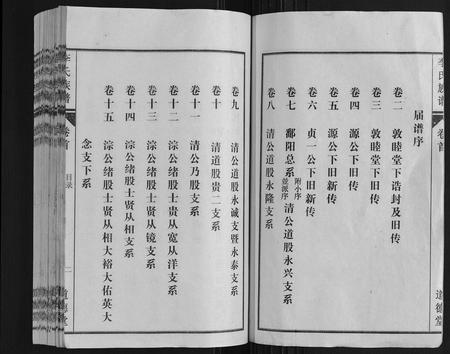 李氏族谱
卷首
道德堂
届谱序
卷二 敦睦堂下诰封及旧传
卷三 敦睦堂下旧传
卷四 源公下旧传
卷五 源公下旧新传
卷六 贞一公下旧新传
卷七 鄱阳总系 附小序 並派序 清公道股永兴支系
卷八 清公道股永隆支系
卷九 清公道股永诚支暨永泰支系
卷十 清道股贵二支系
卷十一 清公乃股支系
卷十二 淙公绪股士贵从寬从洋支系
卷十三 淙公绪股士贤从镜支系
卷十四 淙公绪股士贤从相支系
卷十五 淙公绪股士贤从相大裕大佑英大
念支下系
李氏族谱
卷首
目录
二
道德堂